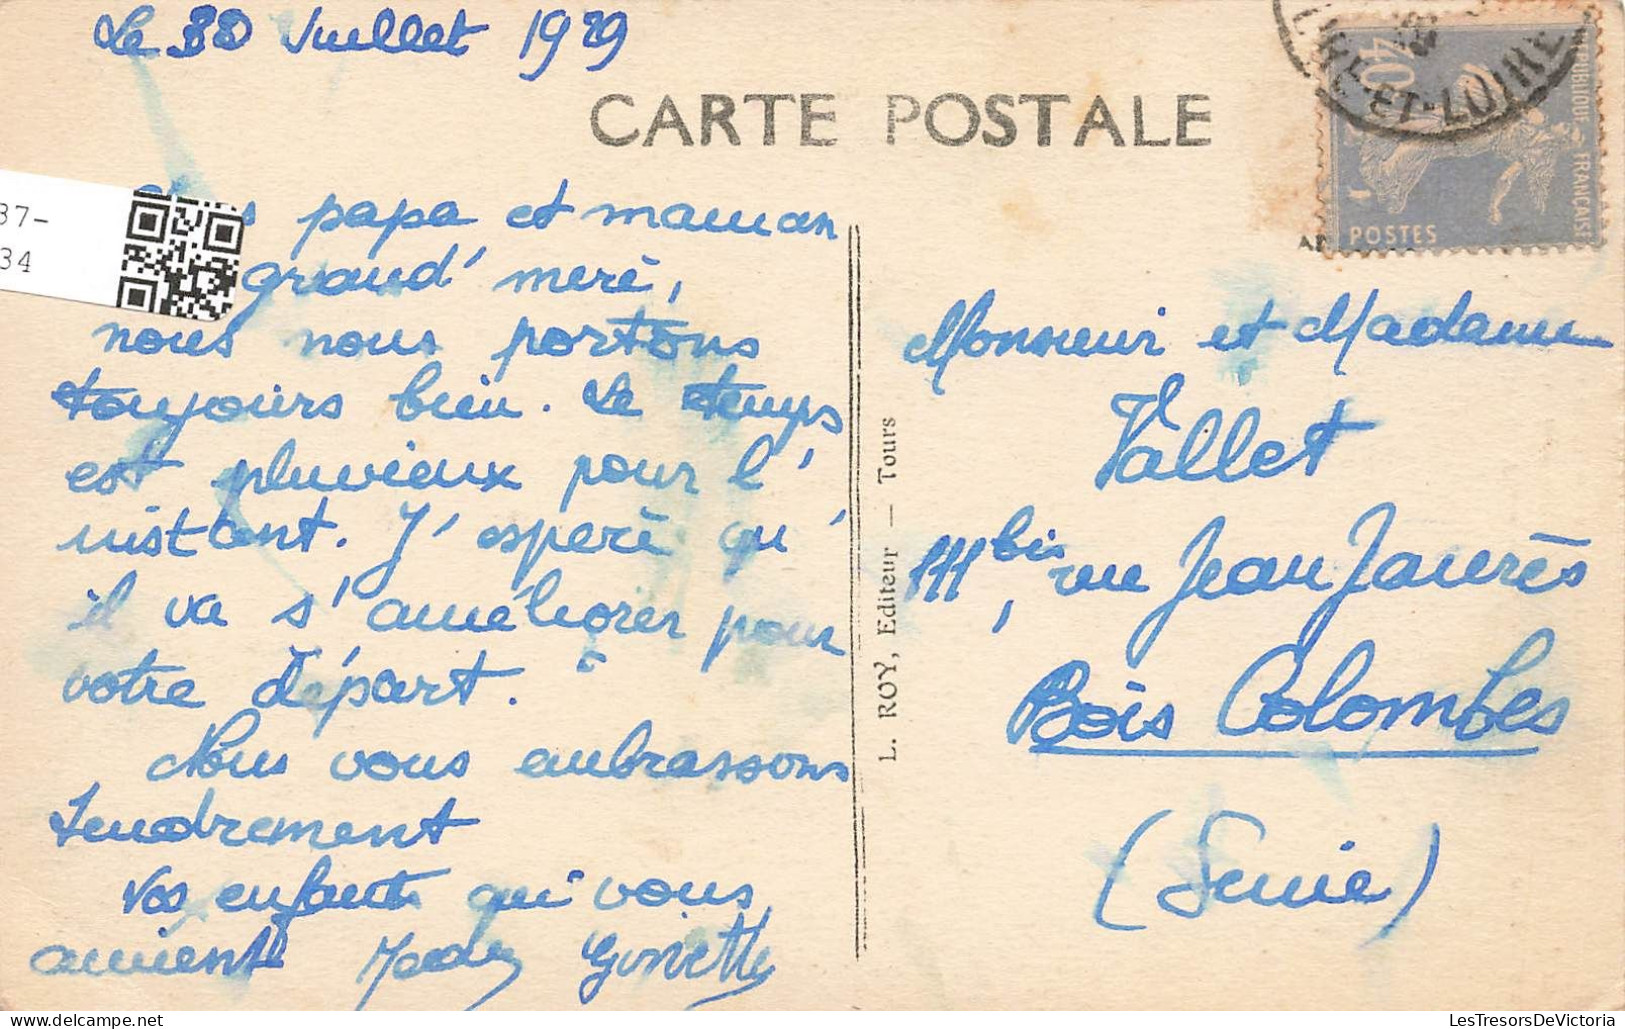 Le 30 Juillet 1929
CARTE POSTALE
INDRE-ET-LOIRE
40
REPUBLIQUE FRANCAISE
POSTES
37-
34
papa et maman
grand' merè,
nous nous portons
toujours bien. Le temps
est pluvieux pour l'
instant. J' esperè qu'
il va s'améliorer pour
votre départ.
Nous vous embrassons
tendrement
Vos enfants qui vous
aiment Ginette
L. ROY, Editeur — Tours
Monsieur et Madame
Vallet
111 bis, rue Jean Jaurès
Bois Colombes
(Seine)
LesTresorsDeVictoria